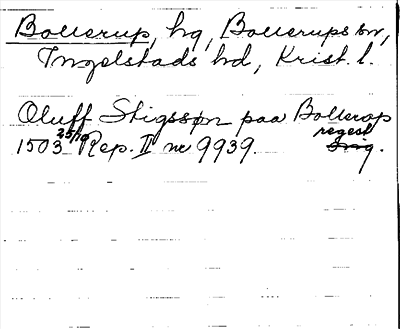 Bollerup, hg, Bollerups sn,
Ingelstads hd, Krist. l.
Oluff Stigssøn paa Bollerop
1503 25/10 Rep. II nr 9939. regest